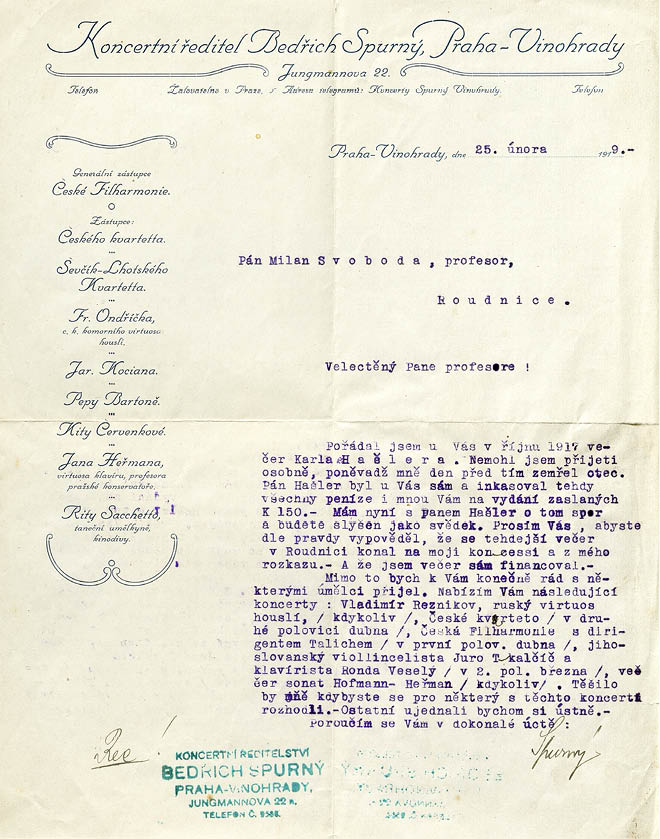 Koncertní ředitel Bedřich Spurný, Praha-Vinohrady
Jungmannova 22.
Telefon Žalovatelno v Praze. Adresa telegramů: Koncerty Spurný Vinohrady. Telefon
Praha-Vinohrady, dne 25. února 1919.-
Generální zástupce
České Filharmonie.
Zástupce:
Českého kvartetta.
Ševčík-Lhotského
Kvartetta.
Fr. Ondříčka,
c. k. komorního virtuosa
houslí.
Jar. Kociana.
Pepy Bartoně.
Kity Červenkové.
Jana Heřmana,
virtuosa klavíru, profesora
pražské konservatoře.
Rity Sacchetto,
taneční umělkyně,
kinodivy.
Pán Milan Svoboda, profesor,
Roudnice.
Velectěný Pane profesore !
Pořádal jsem u Vás v říjnu 1917 ve-
čer Karla Hašlera. Nemohl jsem přijeti
osobně, poněvadž mně den před tím zemřel otec.
Pán Hašler byl u Vás sám a inkasoval tehdy
všechny peníze i mnou Vám na vydání zaslaných
K 150.- Mám nyní s panem Hašler o tom spor
a budete slyšen jako svědek. Prosím Vás, abyste
dle pravdy vypověděl, že se tehdejší večer
v Roudnici konal na moji koncessi a z mého
rozkazu.- A že jsem večer sám financoval.-
Mimo to bych k Vám konečně rád s ně-
kterými umělci přijel. Nabízím Vám následující
koncerty : Vladimír Reznikov, ruský virtuos
houslí, / kdykoliv /, České kvarteto / v dru-
hé polovici dubna /, Česká Filharmonie s diri-
gentem Talichem / v první polov. dubna /, jiho-
slovanský viollincelista Juro Tkalčič a
klavírista Ronda Veselý / v 2. pol. března /, ve
čer sonat Hofmann- Heřman / kdykoliv/ . Těšilo
by mně kdybyste se pro některý s těchto koncertů
rozhodli.-Ostatní ujednali bychom si ústně.-
Poroučím se Vám v dokonalé úctě :
Spurný
KONCERTNÍ ŘEDITELSTVÍ
BEDŘICH SPURNÝ
PRAHA-VINOHRADY,
JUNGMANNOVA 22 n.
TELEFON Č.